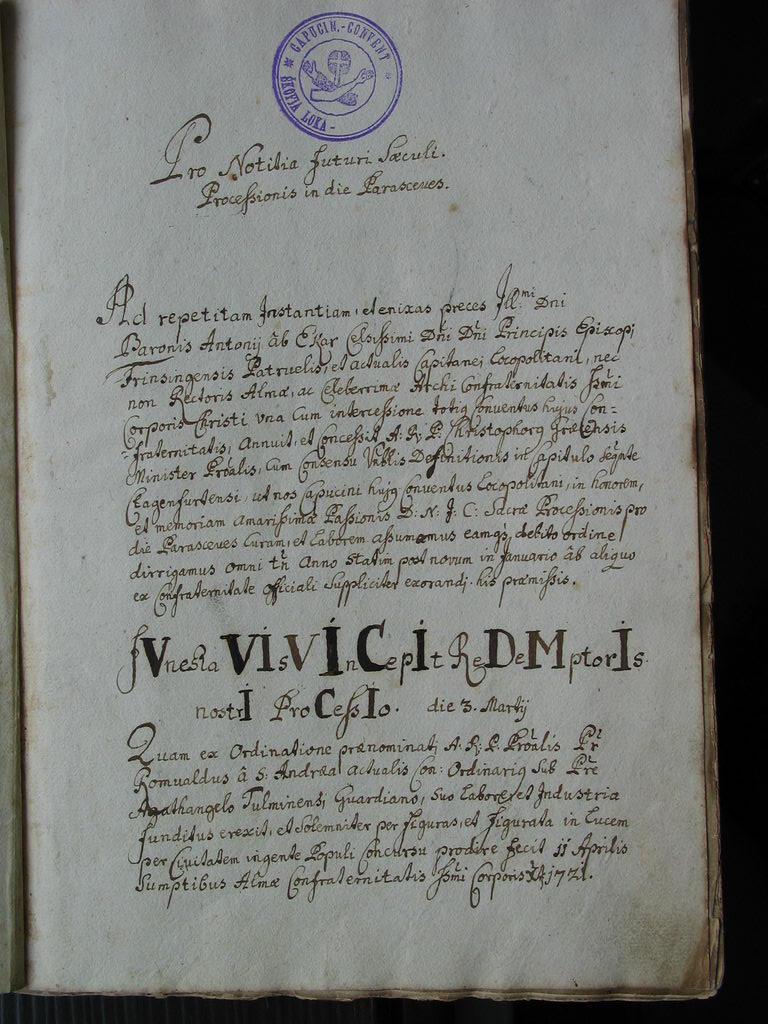 * CAPUCIN.-CONVENT *
ŠKOFJA LOKA -
Pro Notitia futuri Sæculi.
Processionis in die Parasceves.
Ad repetitam Instantiam, et enixas preces Ill:mi Dni
Baronis Antonij ab Ekar Celsissimi Dñi Dñi Principis Episcopi
Frinsingensis Patruelis, et actualis Capitanej Locopolitani, nec
non Rectoris Almæ, ac Celeberrimæ Archi Confraternitatis Ssmi
Corporis Christi una Cum intercessione totig Conventus hujus Con=
=fraternitatis, Annuit, et Concessit A. R. P. Christophorg Græcensis
Minister Proãlis, Cum Consensu Definitionis in Capitulo
Clagenfurtensi, ut nos Capucini hujg Conventus Locopolitani, in honorem,
et memoriam amarissimæ Passionis D: N. J. C: Sacræ Processionis pro
die Parasceves Curam, et Laborem assumamus eamq;, debito ordine
dirrigamus omni tñ Anno Statim post novum in Januario ab aliquo
ex Confraternitate officiali Suppliciter exorandj. his præmissis.
fVnesta VIsVInCepIt ReDeMptorIs
nostrI ProCessIo. die 3. Martij
Quam ex Ordinatione prænominatj A. R. P. Proãlis Pr̃
Romualdus â S: Andrea actualis Con: Ordinarig Sub Pr̃e
Agathangelo Tulminensi, Guardiano, Suo Labore, et Industria
funditus erexit, et Solemniter per figuras, et figurata in Lucem
per Civitatem ingente Populi Concursu prodire fecit 11 Aprilis
Sumptibus Almæ Confraternitatis Ssmi Corporis Xti 1721.